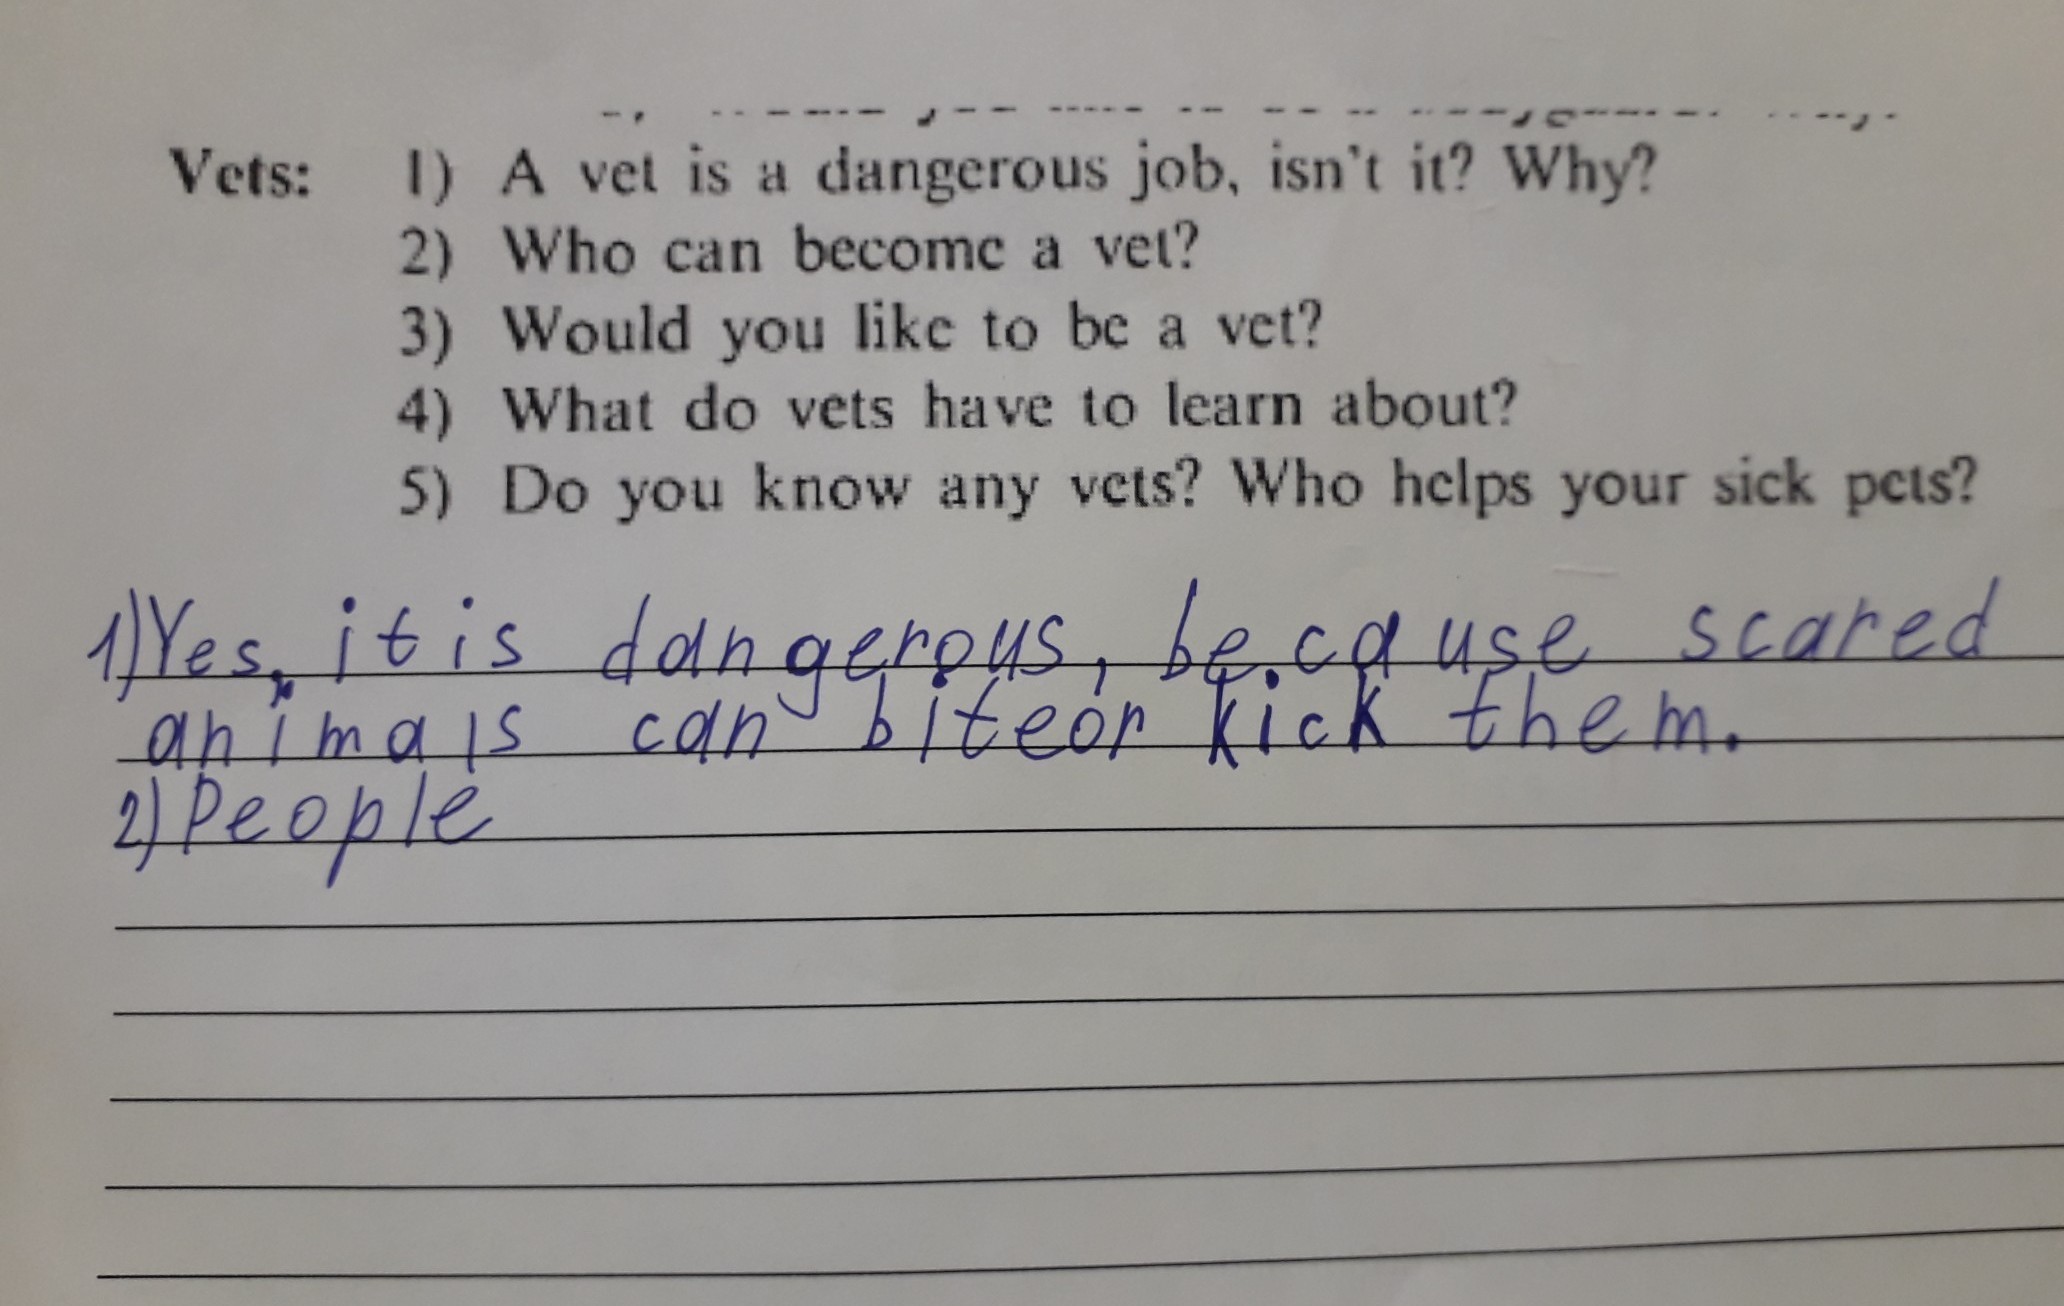 Vets: 1) A vet is a dangerous job, isn't it? Why?
2) Who can become a vet?
3) Would you like to be a vet?
4) What do vets have to learn about?
5) Do you know any vets? Who helps your sick pets?
1) Yes, it is dangerous, because scared
animals can bite or kick them.
2) People